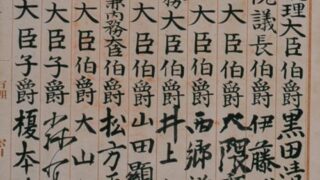 理大臣伯爵黒田清
院議長伯爵伊藤
大臣伯爵大隈
大臣伯爵西郷
務大臣伯爵井上
大臣伯爵山田顯
兼内務大臣伯爵松方正
大臣伯爵大山
大臣子爵
大臣子爵榎本